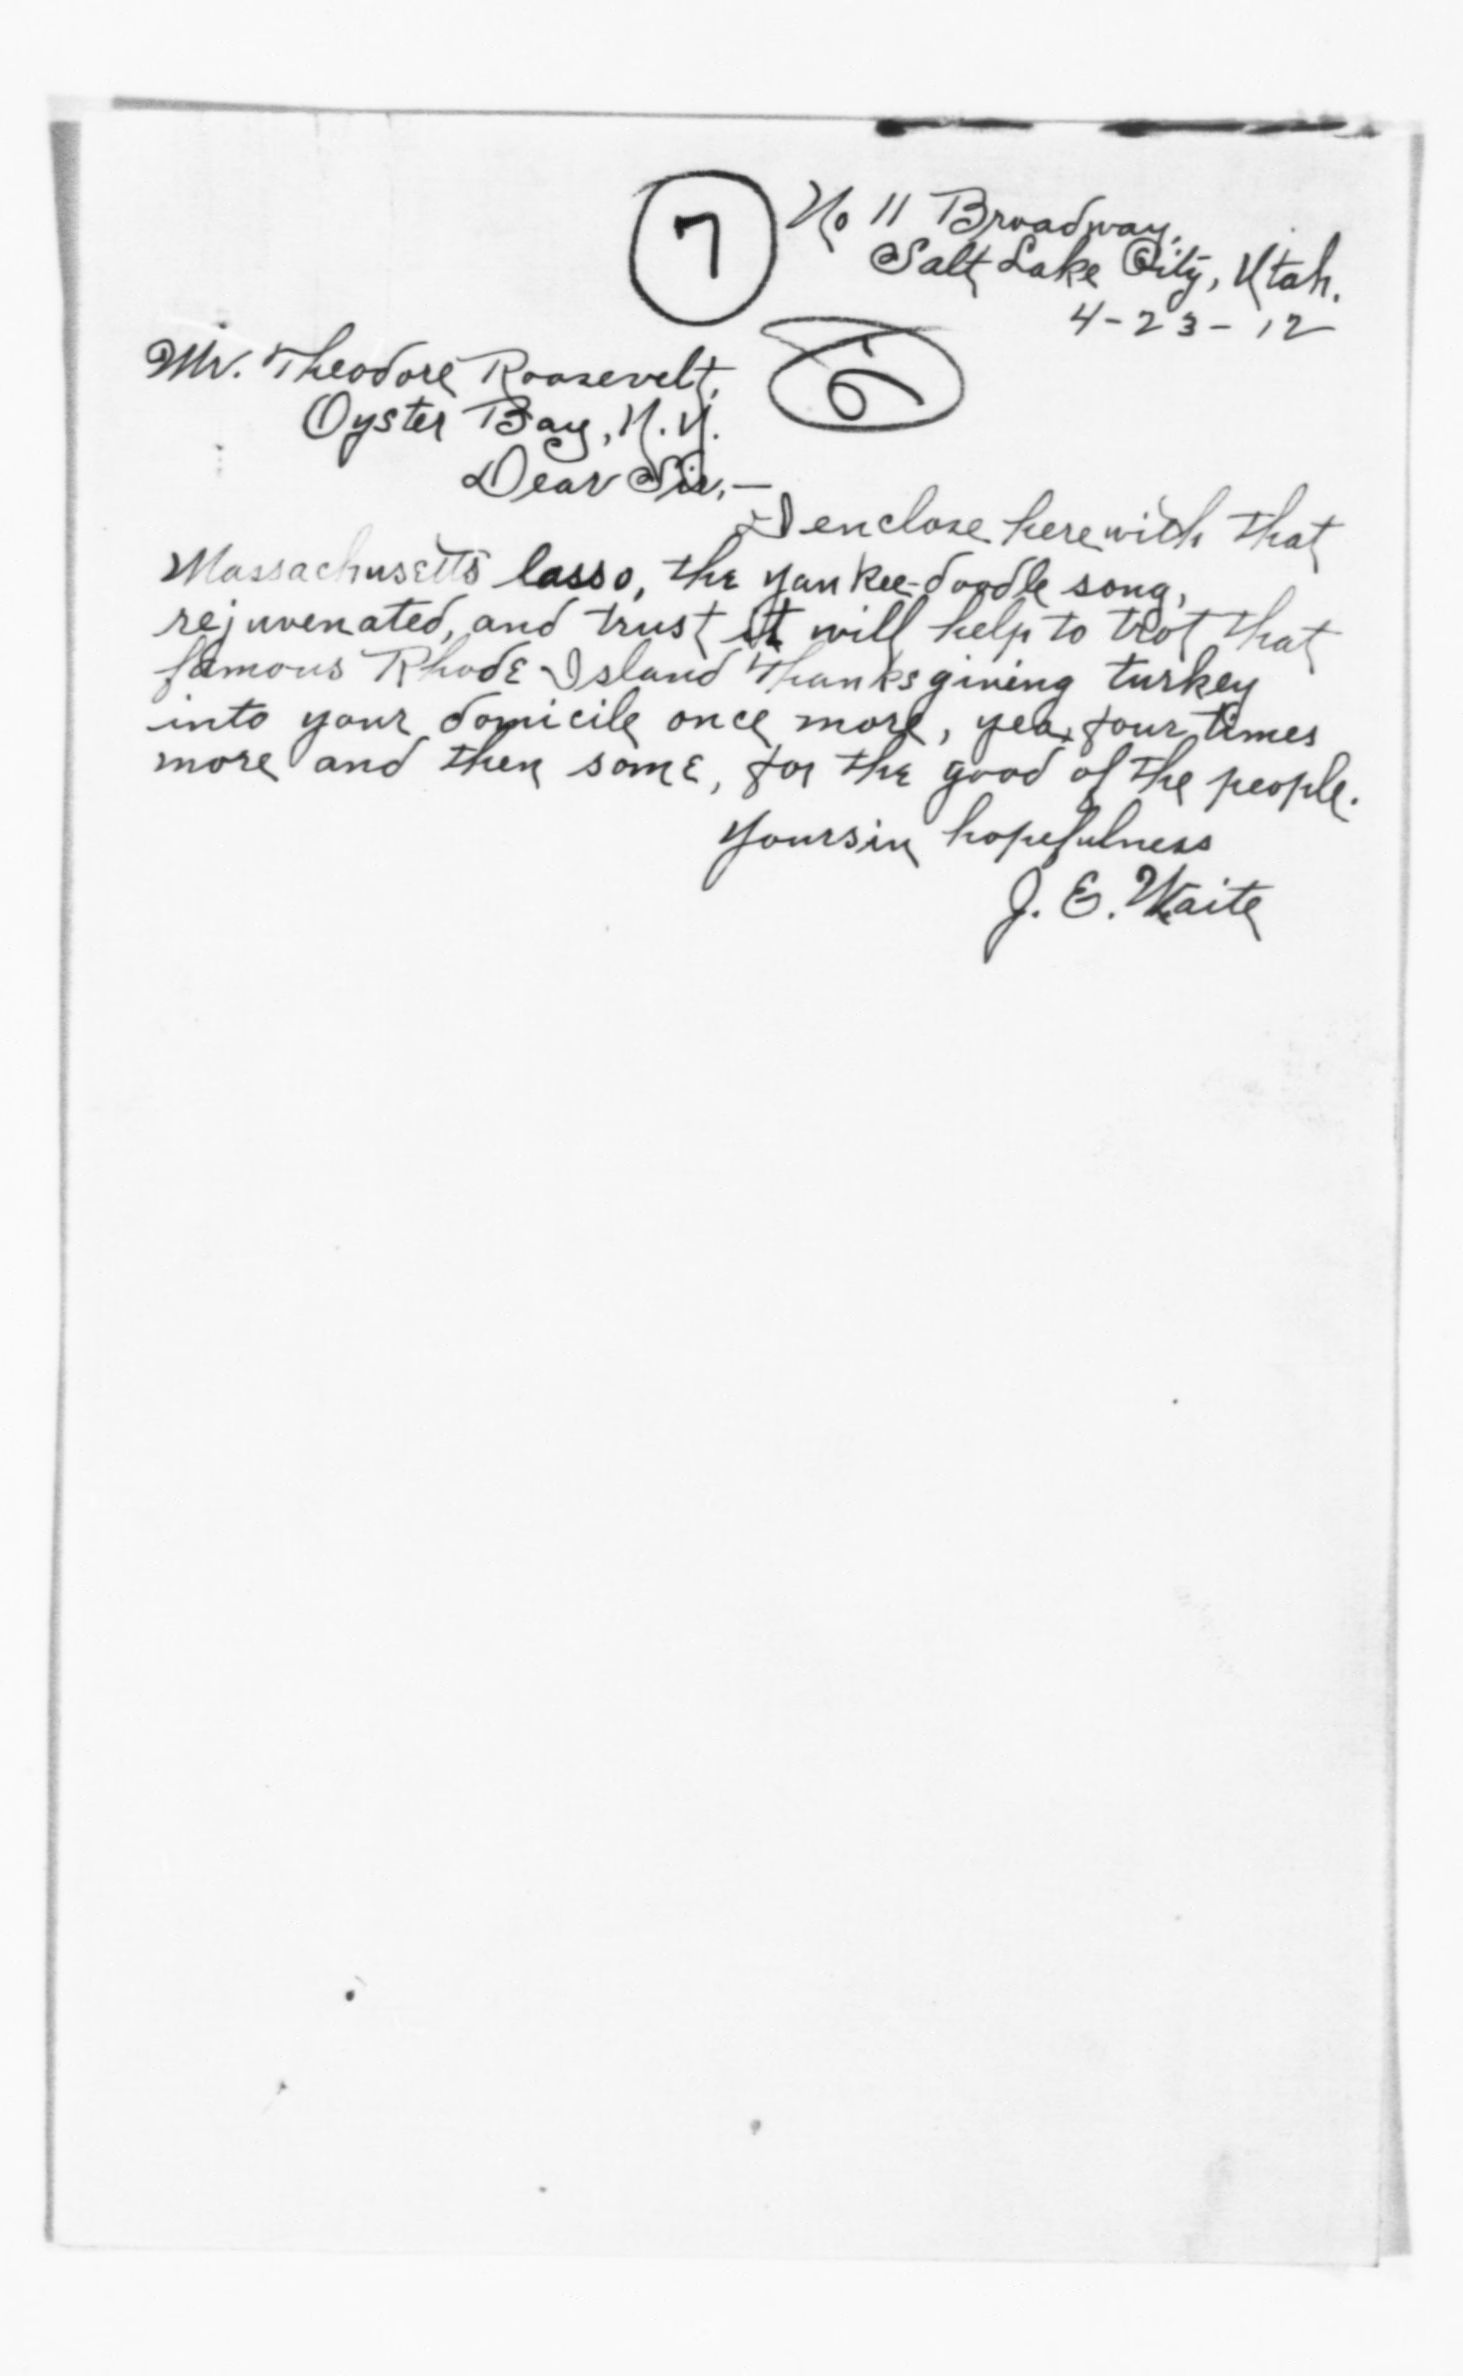 7
No 11 Broadway,
Salt Lake City, Utah.
4-23-12
6
Mr. Theodore Roosevelt,
Oyster Bay, N.Y.
Dear Sir,—
I enclose herewith that
Massachusetts lasso, the yankee-doodle song,
rejuvenated, and trust it will help to trot that
famous Rhode Island Thanksgiving turkey
into your domicile once more, yea, four times
more and then some, for the good of the people.
Yours in hopefulness
J. E. Waite